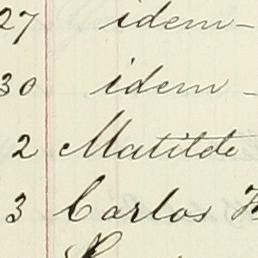 27 idem-
30 idem -
2 Matilde
3 Carlos